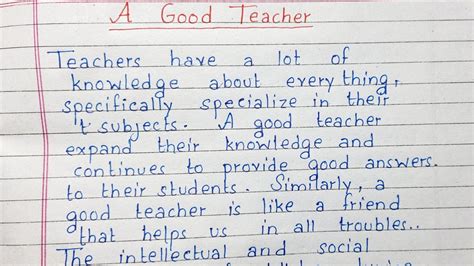 A Good Teacher
Teachers have a lot of
knowledge about every thing,
specifically specialize in their
't subjects. A good teacher
expand their knowledge and
continues to provide good answers.
to their students. Similarly, a
good teacher is like a friend
that helps us in all troubles..
The intellectual and social